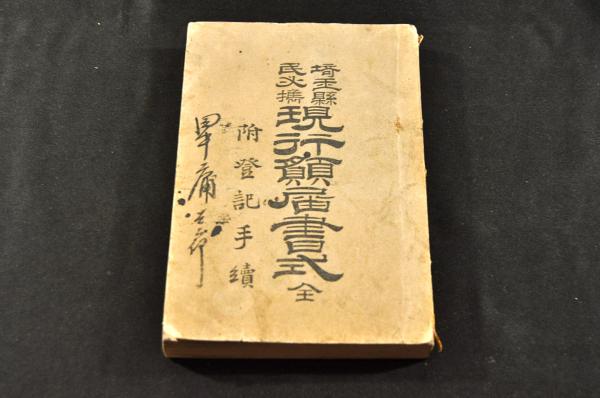 埼玉縣
民必携
現行願届書式 全
附登記手續